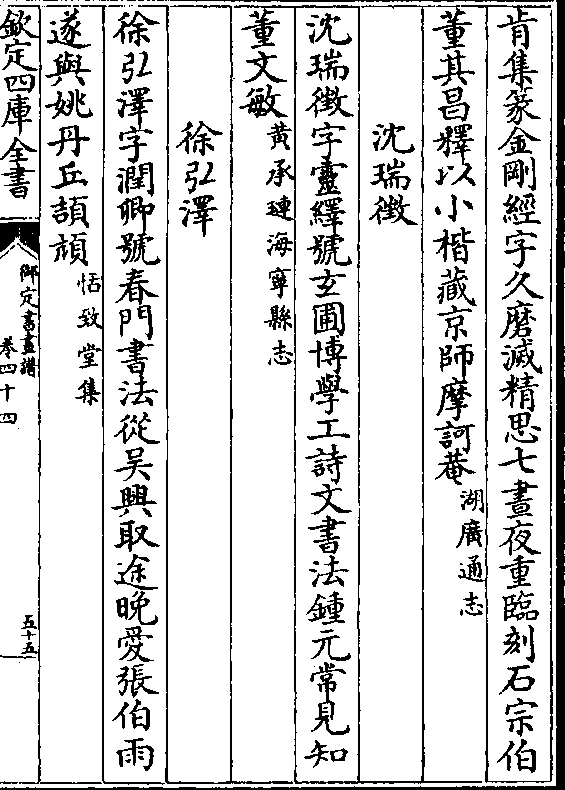 肯集篆金剛經字久磨滅精思七晝夜重臨刻石宗伯
董其昌釋以小楷藏京師摩訶菴湖廣通志
沈瑞徴
沈瑞徴字靈繹號玄圃博學工詩文書法鍾元常見知
董文敏黄承璉海寧縣志
徐弘澤
徐弘澤字潤卿號春門書法從吴興取途晚愛張伯雨
遂與姚丹丘頡頏恬致堂集
欽定四庫全書
御定書畫譜
卷四十四
五十五